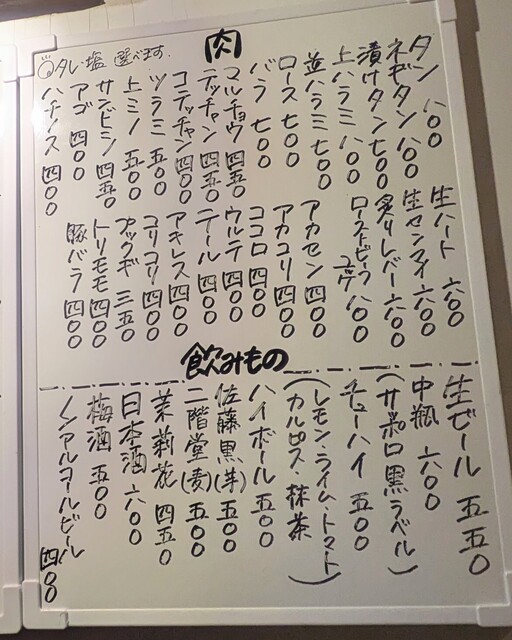 肉
◎タレ塩 選べます.
タン 八〇〇
ネギタン 八〇〇
漬けタン 七〇〇
上ハラミ 八〇〇
並ハラミ 七〇〇
ロース 七〇〇
バラ 七〇〇
マルチョウ 四五〇
テッチャン 四五〇
コテッチャン 四〇〇
ツラミ 五〇〇
上ミノ 五〇〇
サンドミノ 四五〇
アゴ 四〇〇
ハチノス 四〇〇
生ハート 六〇〇
生センマイ 六〇〇
炙りレバー 六〇〇
ローストビーフユッケ 八〇〇
アカセン 四〇〇
アカコリ 四〇〇
ココロ 四〇〇
ウルテ 四〇〇
テール 四〇〇
アキレス 四〇〇
コリコリ 四〇〇
プップギ 三五〇
トリモモ 四〇〇
豚バラ 四〇〇
飲みもの
生ビール 五五〇
中瓶 六〇〇
(サッポロ黒ラベル)
チューハイ 五〇〇
(レモン・ライム・トマト
カルピス・抹茶)
ハイボール 五〇〇
佐藤黒(芋) 五〇〇
二階堂(麦) 五〇〇
茉莉花 四五〇
日本酒 六〇〇
梅酒 五〇〇
ノンアルコールビール 四〇〇